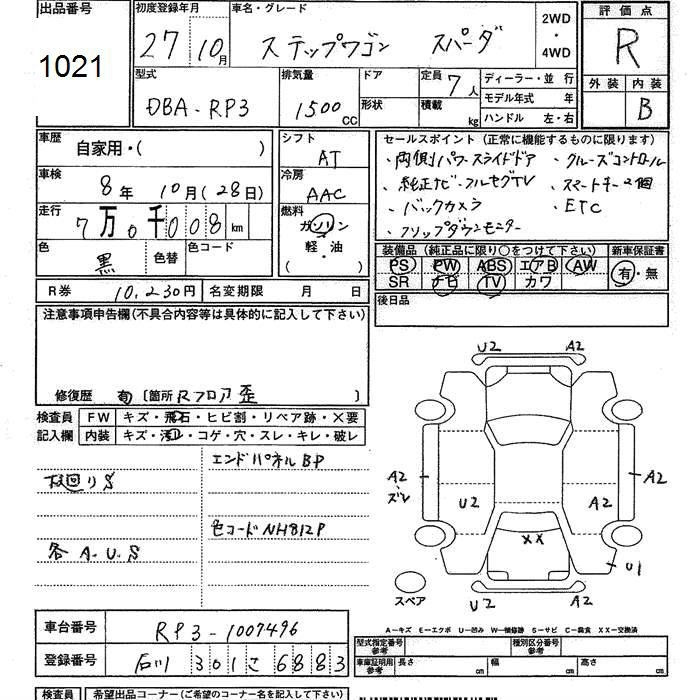 出品番号
1021
初度登録年月
27 10月
車名・グレード
ステップワゴン スパーダ
2WD
・
4WD
評価点
R
外装 内装
B
型式
DBA-RP3
排気量
1500 CC
ドア
形状
定員 7人
積載 kg
ディーラー・並 行
モデル年式 年
ハンドル 左・右
車歴
自家用・( )
車検
8年 10月(28日)
走行
7万0千008 km
色
黒
色替
色コード
シフト
AT
冷房
AAC
燃料
ガソリン
軽・油
( ・ )
セールスポイント (正常に機能するものに限ります)
・両側パワースライドドア ・クルーズコントロール
・純正ナビ・フルセグTV ・スマートキー2個
・バックカメラ ・ETC
・フリップダウンモニター
装備品 (純正品に限り○をつけて下さい) 新車保証書
PS PW ABS エアB AW
SR ナビ TV カワ
有・無
後日品
R券 10,230円 名変期限 月 日
注意事項申告欄(不具合内容等は具体的に記入して下さい)
修復歴 有 〔箇所 Rフロア歪 〕
検査員 FW キズ・飛石・ヒビ割・リペア跡・X要
記入欄 内装 キズ・汚れ・コゲ・穴・スレ・キレ・破レ
エンドパネルBP
下回りS
色コードNH812P
各 A.U.S
U2 A2
A2 A2
ズレ
U2 A2
XX
U1
U2 A2
スペア
A−キズ E−エクボ U−凹み W−補修跡 S−サビ C−腐食 XX−交換済
車台番号 RP3-1007496
登録番号 石川 301 さ 6883
型式指定番号 参考
種別区分番号 参考
車庫証明用 参考 長さ cm 幅 cm 高さ cm
検査員 希望出品コーナー(ご希望のコーナー名を記入して下さい)